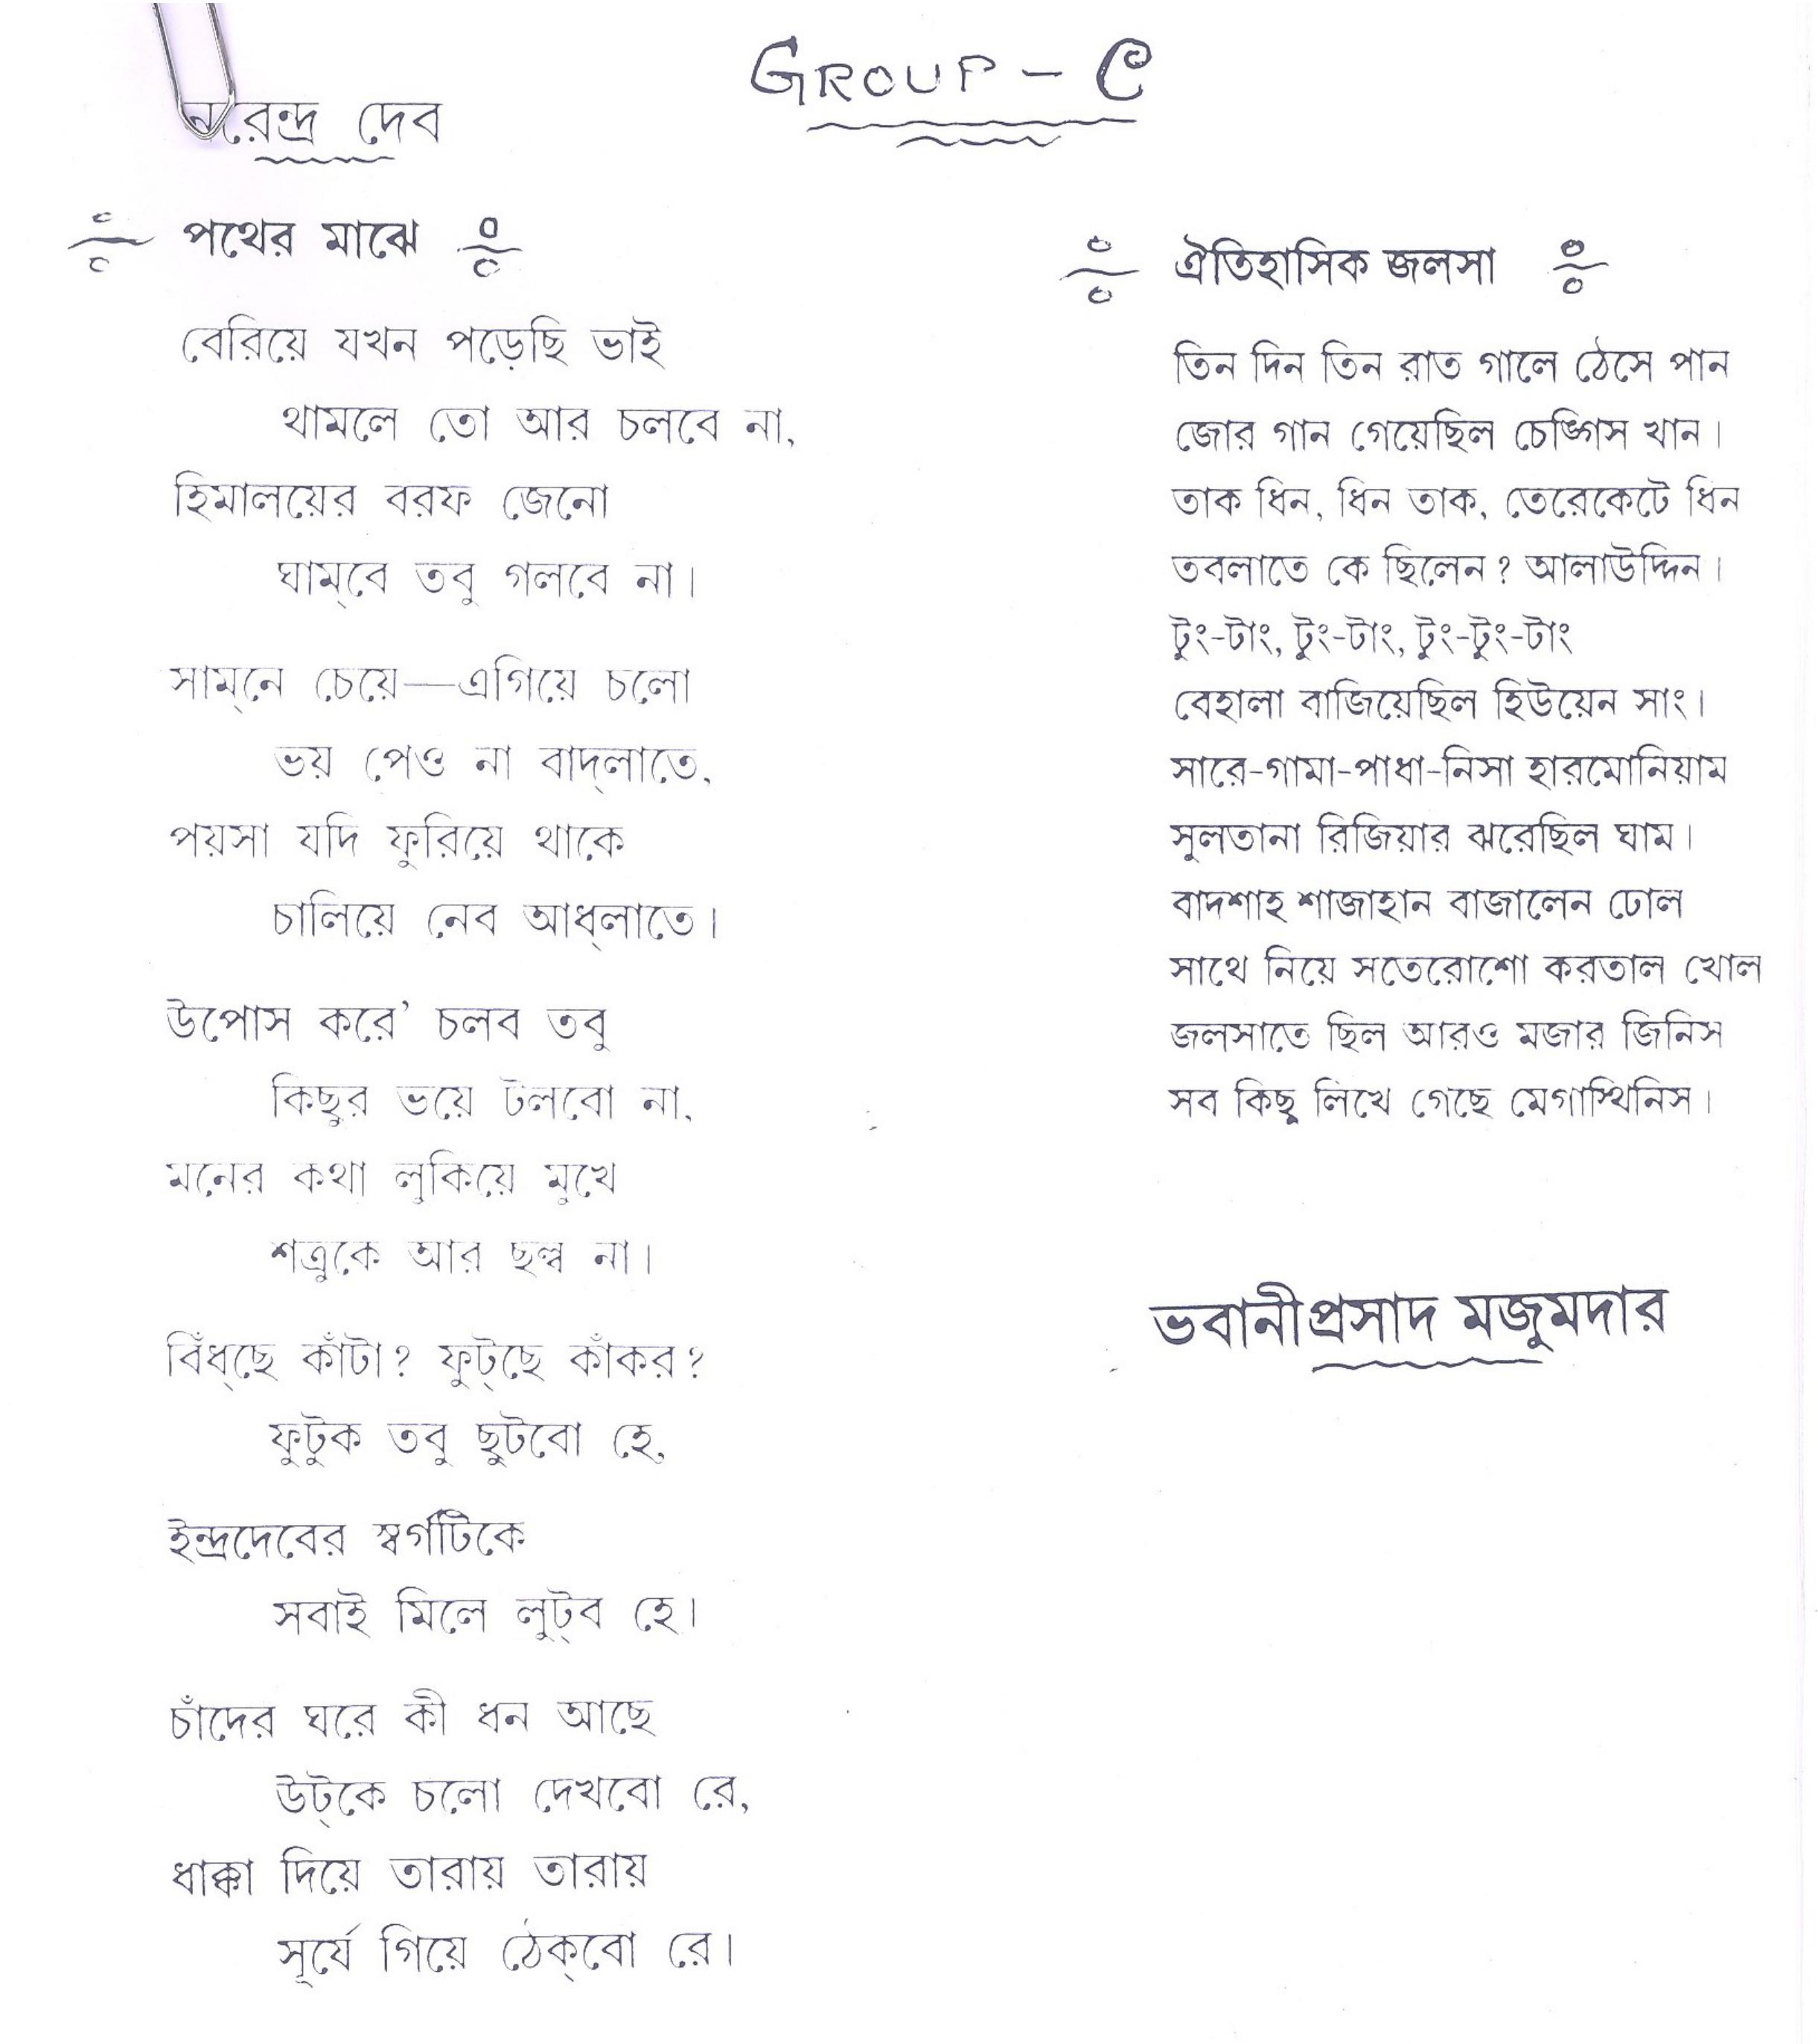 GROUP - C
নরেন্দ্র দেব
পথের মাঝে
বেরিয়ে যখন পড়েছি ভাই
থামলে তো আর চলবে না,
হিমালয়ের বরফ জেনো
ঘাম্‌বে তবু গলবে না।
সাম্‌নে চেয়ে—এগিয়ে চলো
ভয় পেও না বাদ্‌লাতে,
পয়সা যদি ফুরিয়ে থাকে
চালিয়ে নেব আধ্‌লাতে।
উপোস করে’ চলব তবু
কিছুর ভয়ে টলবো না,
মনের কথা লুকিয়ে মুখে
শত্রুকে আর ছল্ব না।
বিঁধ্‌ছে কাঁটা? ফুট্‌ছে কাঁকর?
ফুটুক তবু ছুটবো হে,
ইন্দ্রদেবের স্বর্গটিকে
সবাই মিলে লুট্‌ব হে।
চাঁদের ঘরে কী ধন আছে
উট্‌কে চলো দেখবো রে,
ধাক্কা দিয়ে তারায় তারায়
সূর্যে গিয়ে ঠেক্‌বো রে।
ঐতিহাসিক জলসা
তিন দিন তিন রাত গালে ঠেসে পান
জোর গান গেয়েছিল চেঙ্গিস খান।
তাক ধিন, ধিন তাক, তেরেকেটে ধিন
তবলাতে কে ছিলেন? আলাউদ্দিন।
টুং-টাং, টুং-টাং, টুং-টুং-টাং
বেহালা বাজিয়েছিল হিউয়েন সাং।
সারে-গামা-পাধা-নিসা হারমোনিয়াম
সুলতানা রিজিয়ার ঝরেছিল ঘাম।
বাদশাহ শাজাহান বাজালেন ঢোল
সাথে নিয়ে সতেরোশো করতাল খোল
জলসাতে ছিল আরও মজার জিনিস
সব কিছু লিখে গেছে মেগাস্থিনিস।
ভবানীপ্রসাদ মজুমদার